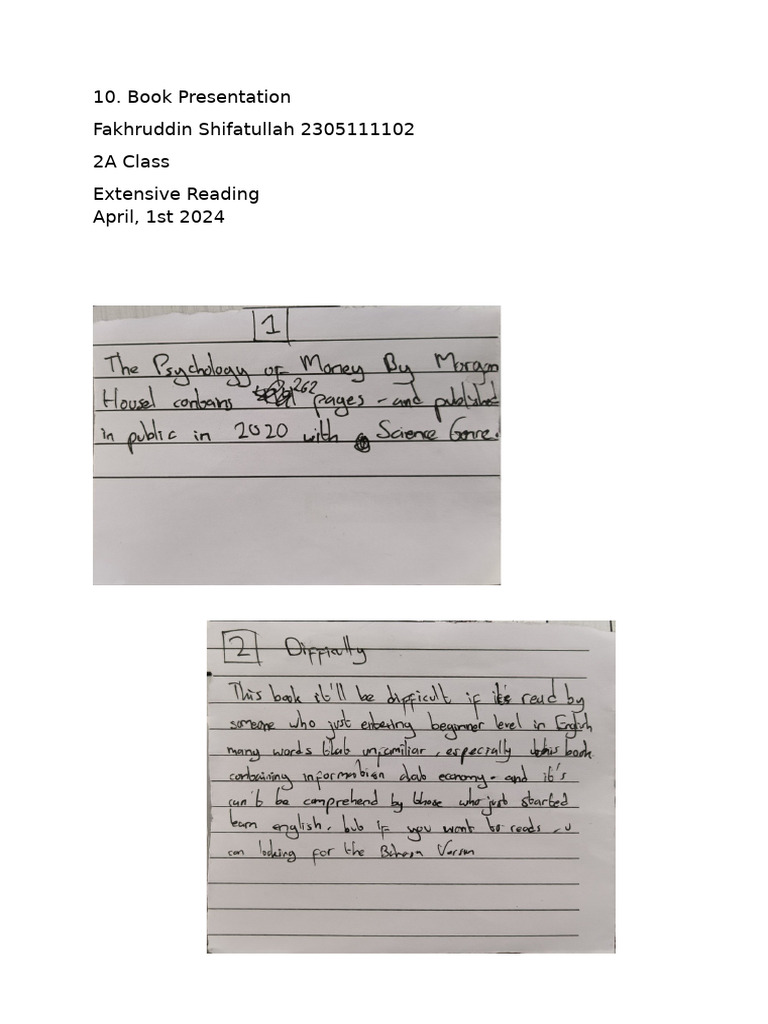 10. Book Presentation
Fakhruddin Shifatullah 2305111102
2A Class
Extensive Reading
April, 1st 2024
1
The Psychology of Money By Morgan
Housel contains 262 pages - and published
in public in 2020 with Science Genre.
2 Difficulty
This book it'll be difficult if it's read by
someone who just entering beginner level in English
many words that unfamiliar, especially this book
containing information economy - and it's
can't be comprehend by those who just started
learn english, but if you want to reads, u
can looking for the Bahasa